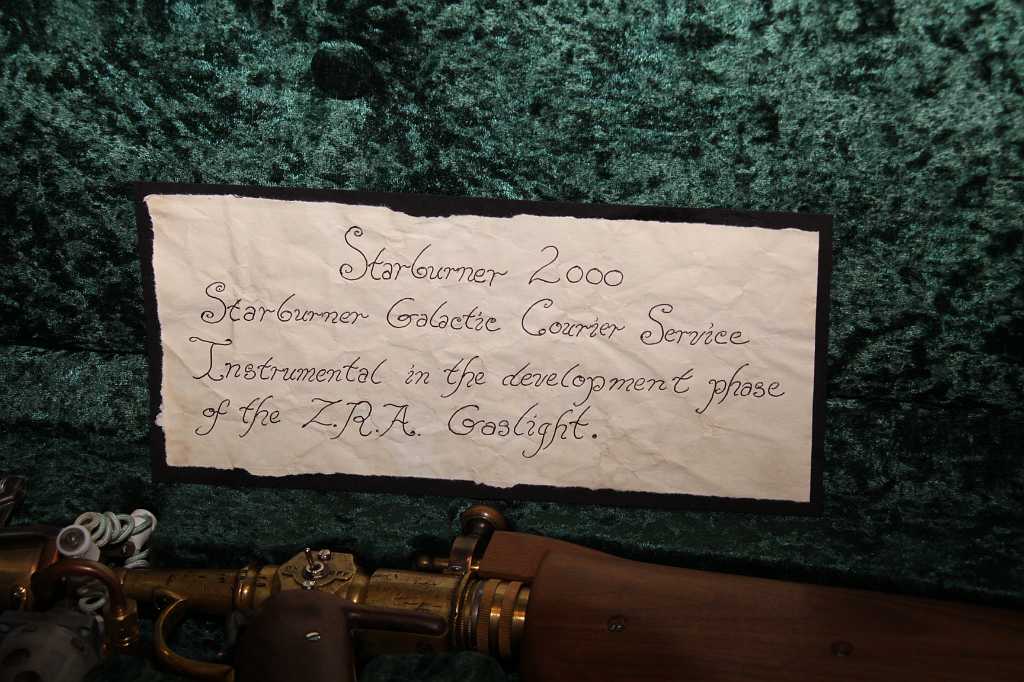 Starburner 2000
Starburner Galactic Courier Service
Instrumental in the development phase
of the Z.R.A. Gaslight.